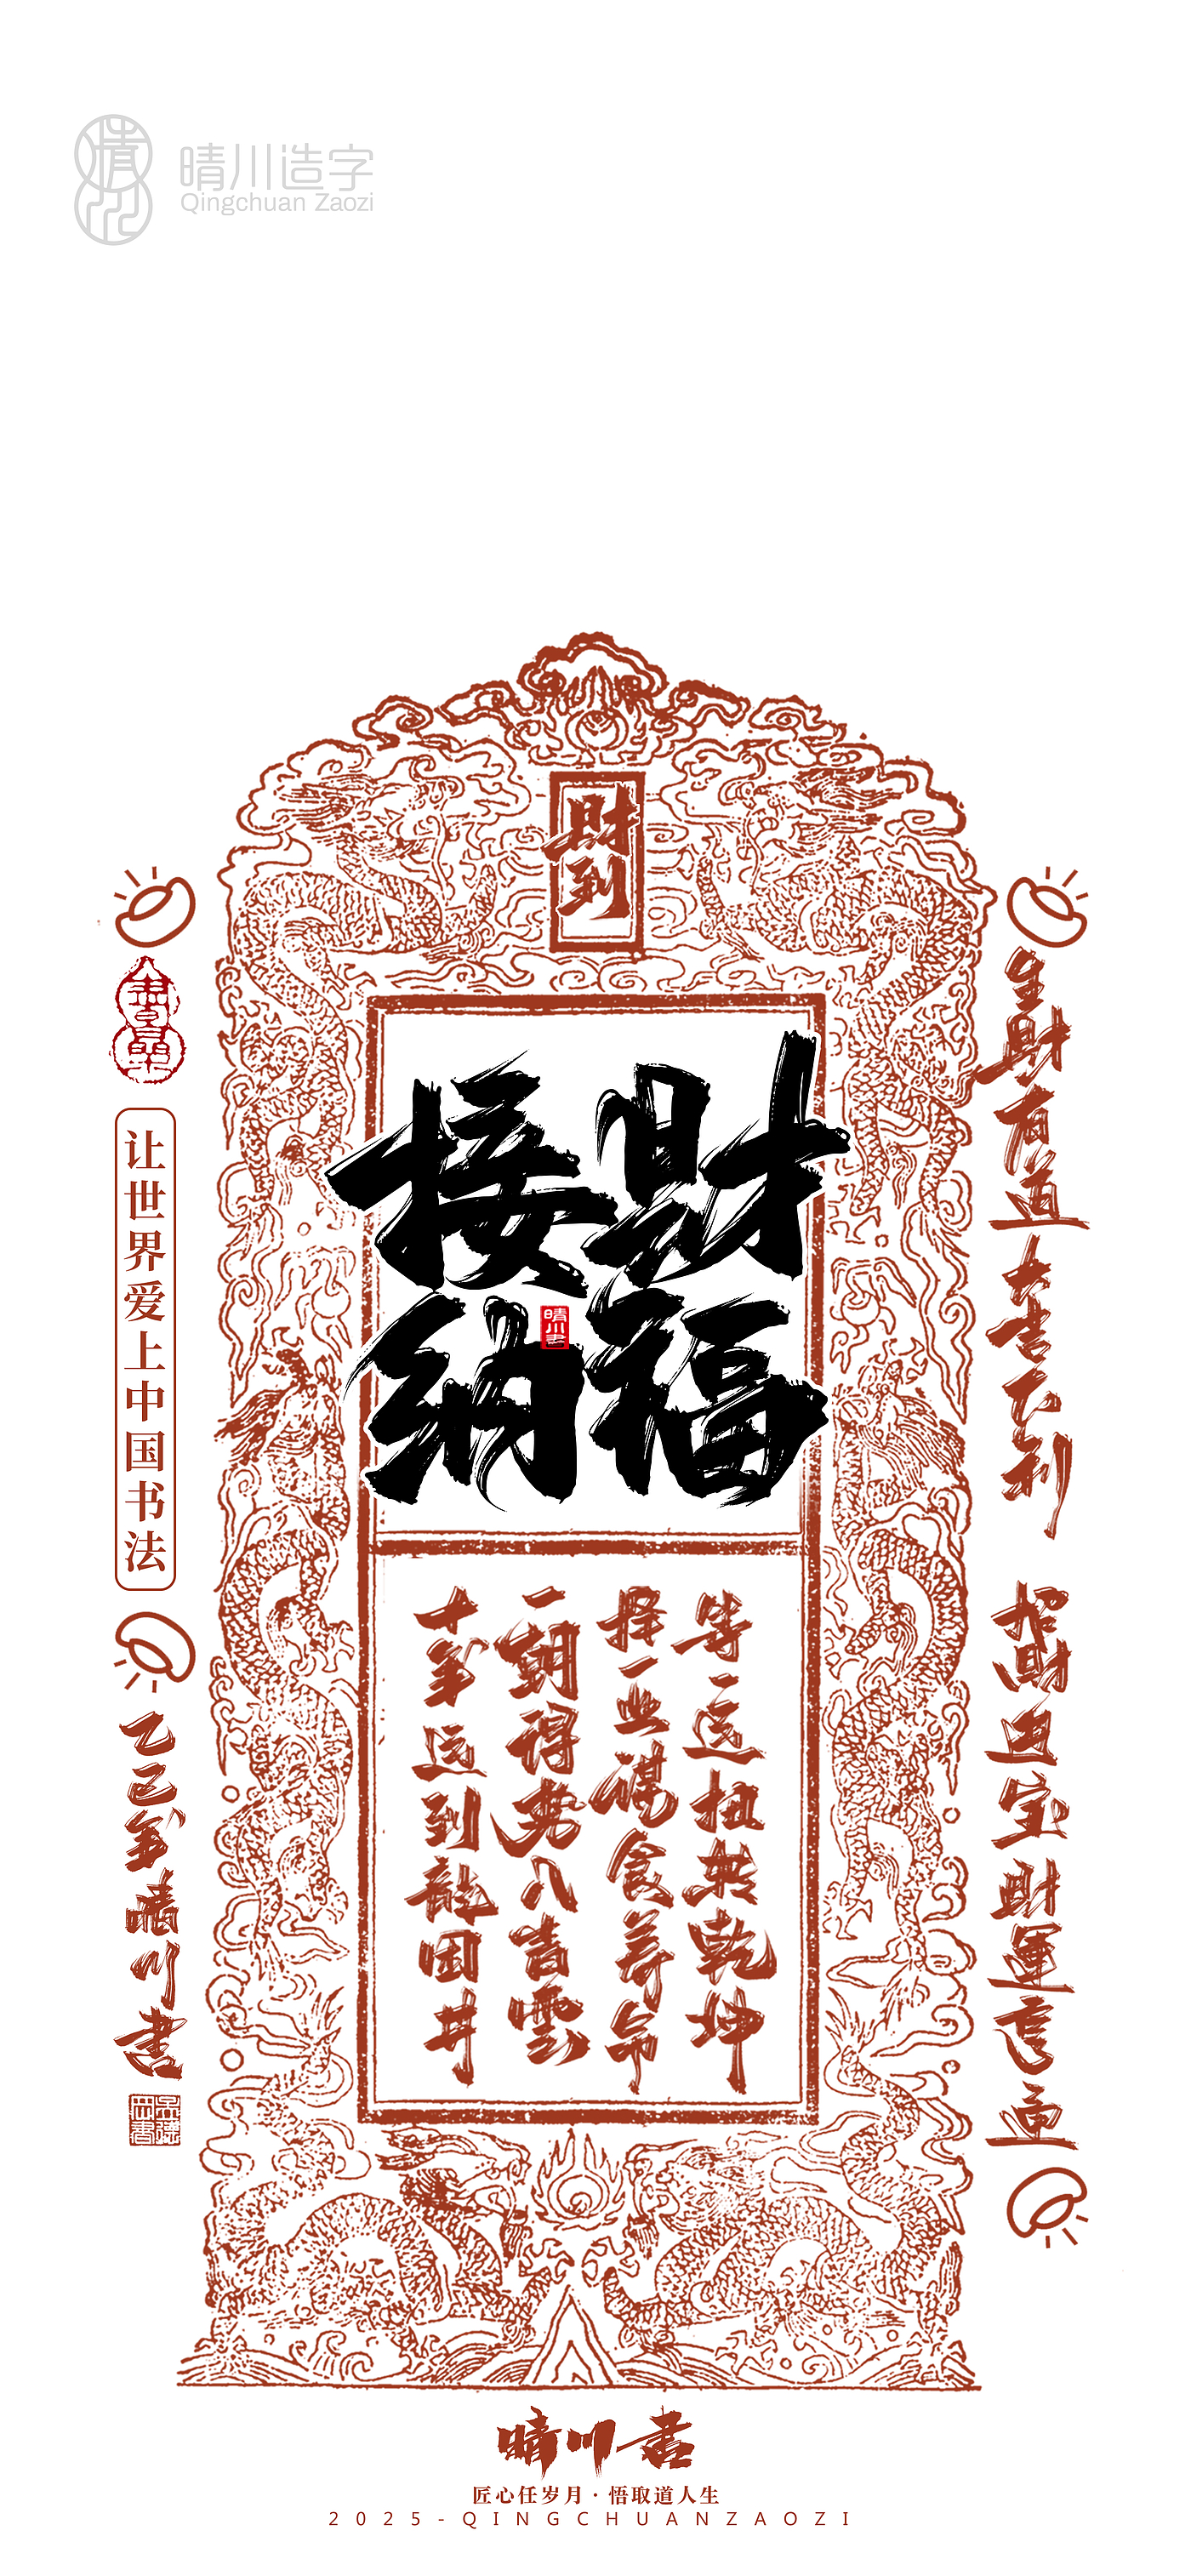 晴川造字
Qingchuan Zaozi
財到
接財
纳福
晴川書
十年运到龍困井
一朝得势入青雲
择一业谋食养命
等一运扭转乾坤
让世界爱上中国书法
乙巳年晴川書
生財有道大吉大利
招財进宝財運亨通
晴川書
匠心任岁月·悟取道人生
2025-QINGCHUANZAOZI